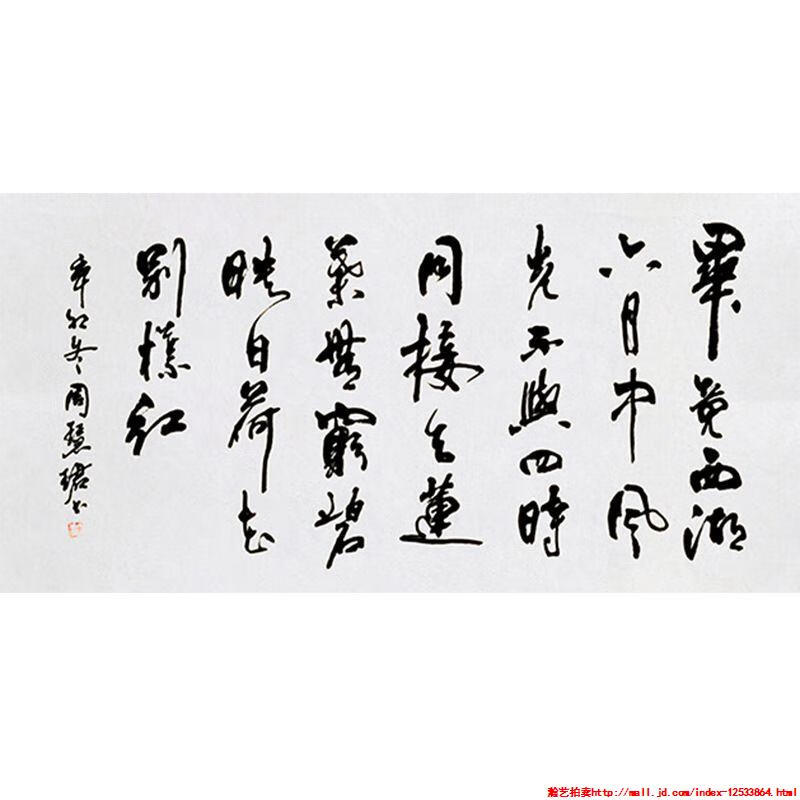 畢竟西湖
六月中風
光不與四時
同接天蓮
葉無窮碧
映日荷花
别樣紅
辛卯冬周慧珺書
瀚艺拍卖http://mall.jd.com/index-12533864.html